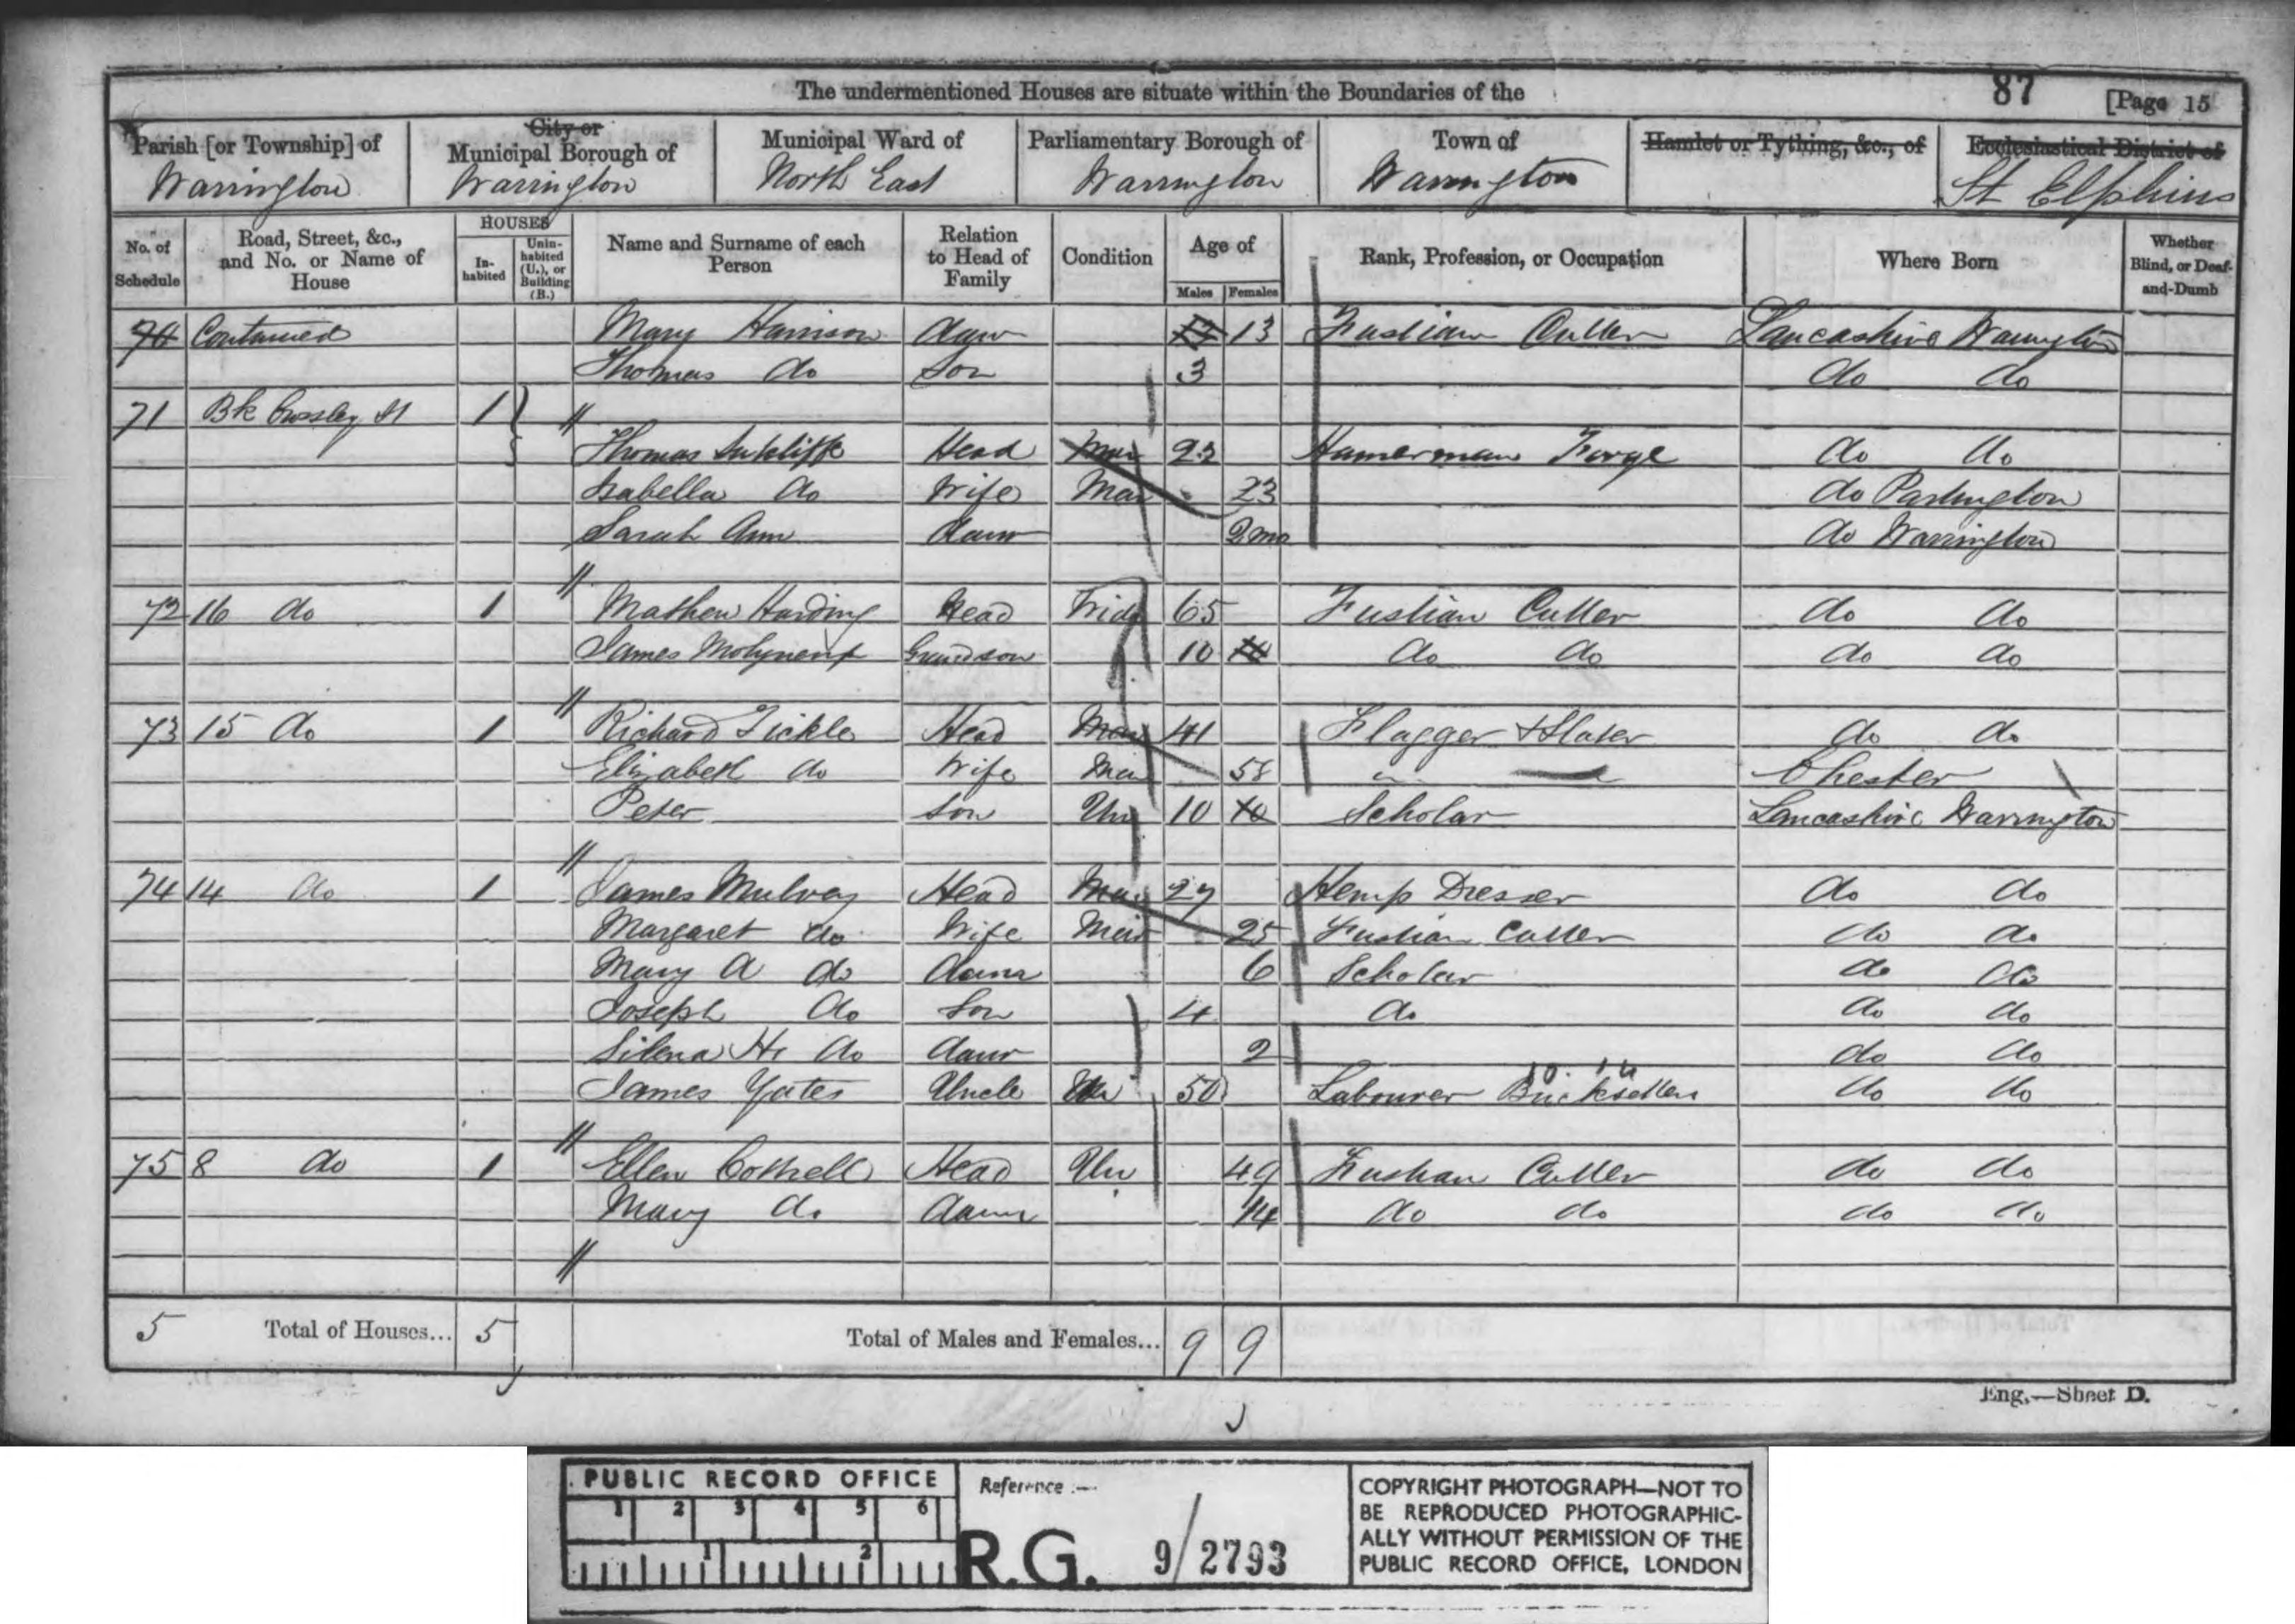 The undermentioned Houses are situate within the Boundaries of the
87
[Page 15
Parish [or Township] of Warrington
City or Municipal Borough of Warrington
Municipal Ward of North East
Parliamentary Borough of Warrington
Town of Warrington
Hamlet or Tything, &c., of
Ecclesiastical District of St Elphins
No. of Schedule
Road, Street, &c., and No. or Name of House
HOUSES
In-habited
Unin-habited (U.), or Building (B.)
Name and Surname of each Person
Relation to Head of Family
Condition
Age of
Males
Females
Rank, Profession, or Occupation
Where Born
Whether Blind, or Deaf-and-Dumb
70 Continued Mary Harrison daur 13 Fustian Cutter Lancashire Warrington
Thomas do Son 3 do do
71 Bk Crossley St 1
Thomas Sutcliffe Head Mar 23 Hamerman Forge do do
Isabella do Wife Mar 23 do Partington
Sarah Ann daur 2mo do Warrington
72 16 do 1 Mathew Harding Head Wid 65 Fustian Cutter do do
James Molyneux Grandson 10 do do do do
73 15 do 1 Richard Tickle Head Mar 41 Flagger & Slater do do
Elizabeth do Wife Mar 58 Chester
Peter Son Un 10 Scholar Lancashire Warrington
74 14 do 1 James Mulvey Head Mar 27 Hemp Dresser do do
Margaret do Wife Mar 25 Fustian Cutter do do
Mary A do daur 6 Scholar do do
Joseph do Son 4 do do do
Silena H do daur 2 do do
James Yates Uncle Un 50 Labourer Bricksetters do do
75 8 do 1 Ellen Cottrell Head Un 49 Fustian Cutter do do
Mary do daur 14 do do do do
5 Total of Houses... 5 Total of Males and Females... 9 9
Eng.—Sheet D.
PUBLIC RECORD OFFICE
1 2 3 4 5 6
1 2
Reference :—
R.G. 9/2793
COPYRIGHT PHOTOGRAPH—NOT TO
BE REPRODUCED PHOTOGRAPHIC-
ALLY WITHOUT PERMISSION OF THE
PUBLIC RECORD OFFICE, LONDON